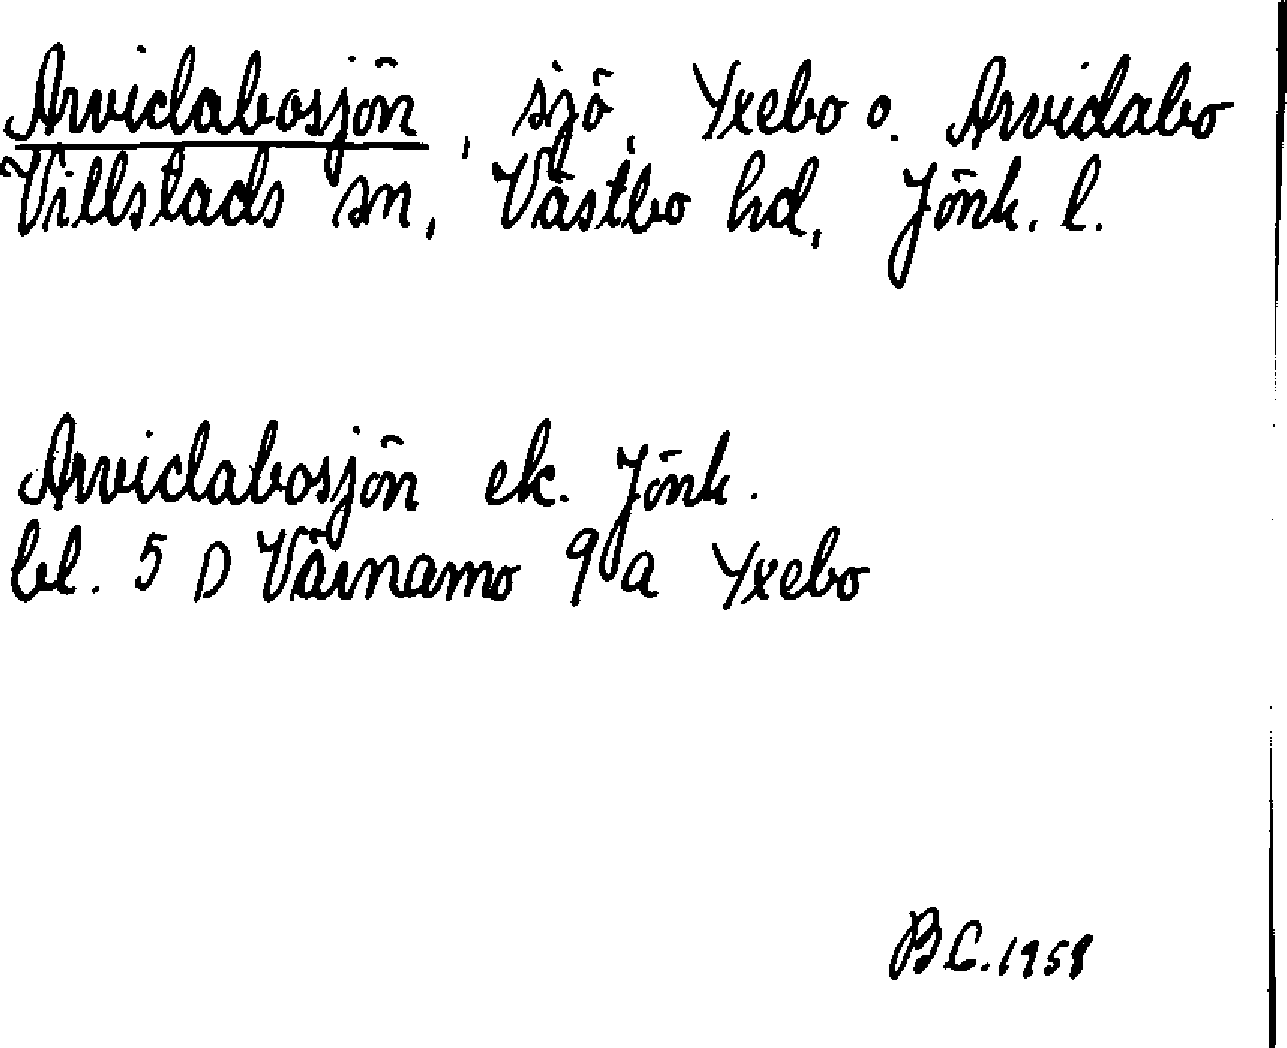 Arvidabosjön, sjö, Yxebo o. Arvidabo
Villstads sn, Västbo hd, Jönk. l.
Arvidabosjön ek. Jönk.
bl. 5 D Värnamo 9 a Yxebo
B L. 1958